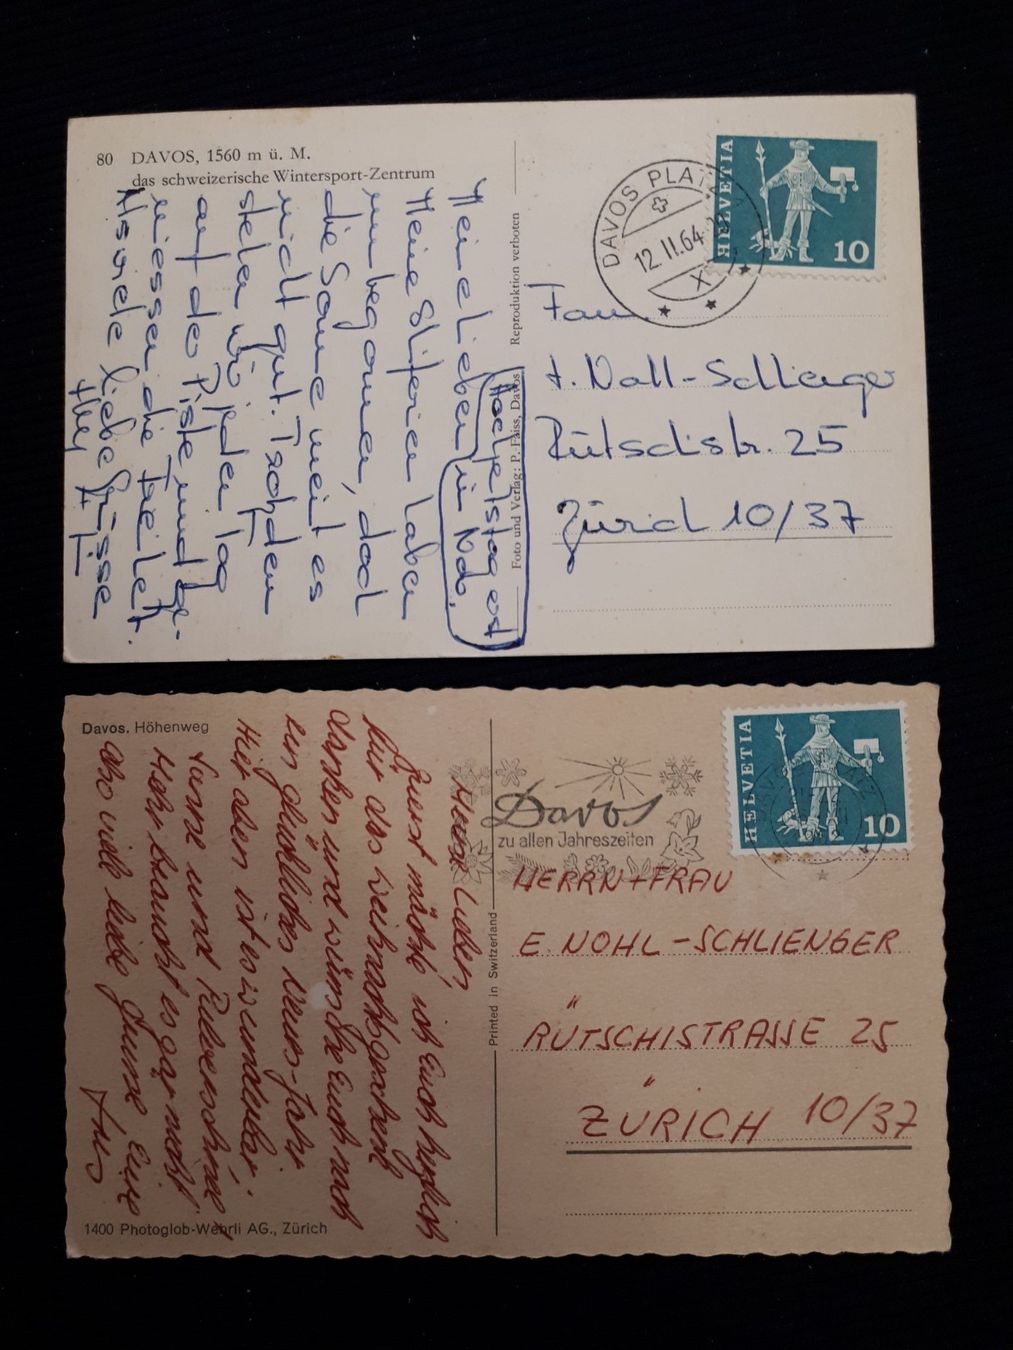 80 DAVOS, 1560 m ü. M.
das schweizerische Wintersport-Zentrum
Meine Lieben
Meine Skiferien haben
nun begonnen, doch
die Sonne meint es
nicht gut. Trotzdem
stehen wir jeden Tag
auf der Piste und ge-
niessen die Freiheit.
Alsviele liebe Grüsse
in Mdo,
Foto und Verlag: P. Faiss, Davos
Reproduktion verboten
DAVOS PLATZ
12.II.64
X
HELVETIA
10
Fam.
Rütschistr. 25
Zürich 10/37
Davos. Höhenweg
Meine Lieben,
Zuerst möcht' ich Euch herzlich
für das Weihnachtsgeschenk
danken und wünsche Euch noch
ein glückliches Neues-Jahr.
Hier oben ist es wunderbar:
Sonne und Pulverschnee,
Mehr braucht es gar nicht.
Also viele liebe Grüsse Eure
1400 Photoglob-Wehrli AG., Zürich
Printed in Switzerland
Davos
zu allen Jahreszeiten
HELVETIA
10
HERRN + FRAU
E. NOHL-SCHLIENGER
RÜTSCHISTRASSE 25
ZÜRICH 10/37